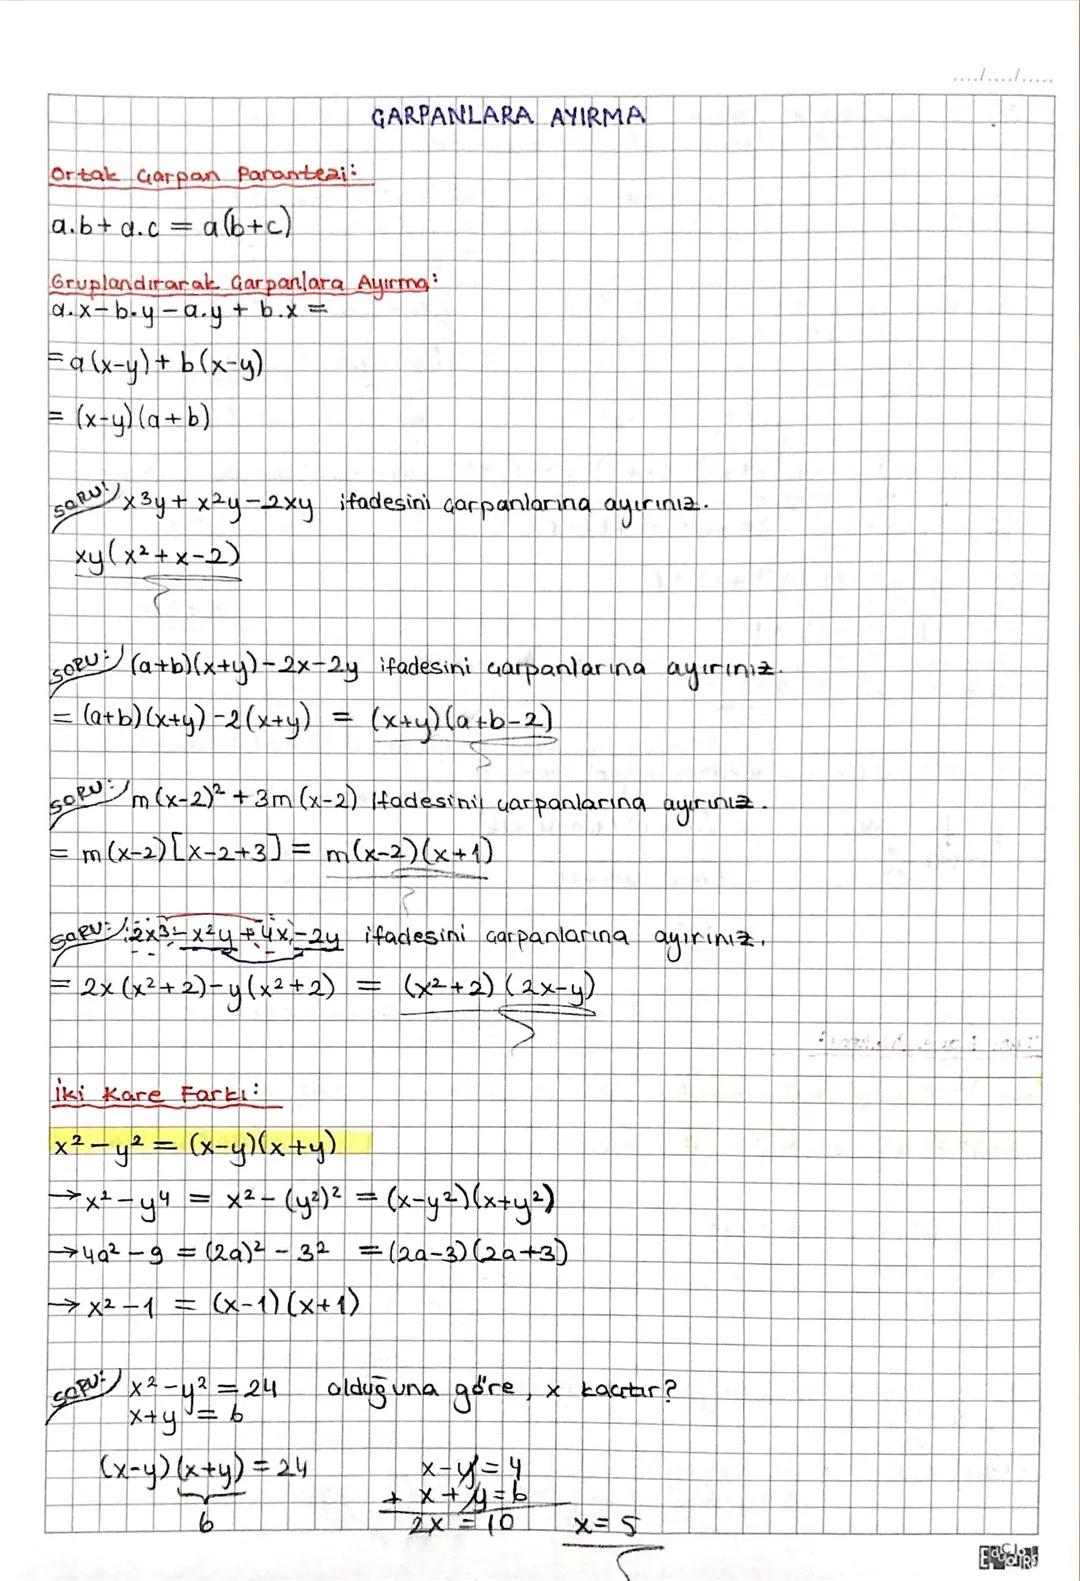 ..../..../.....
ÇARPANLARA AYIRMA
Ortak Çarpan Parantezi:
a.b + a.c = a(b+c)
Gruplandırarak Çarpanlara Ayırma:
a.x - b.y - a.y + b.x =
= a(x-y) + b(x-y)
= (x-y)(a+b)
SORU: x3y + x²y - 2xy ifadesini çarpanlarına ayırınız.
xy(x²+x-2)
SORU: (a+b)(x+y) - 2x - 2y ifadesini çarpanlarına ayırınız.
= (a+b)(x+y) - 2(x+y) = (x+y)(a+b-2)
SORU: m(x-2)² + 3m(x-2) ifadesinil çarpanlarına ayırınız.
= m(x-2)[x-2+3] = m(x-2)(x+1)
SORU: 2x3 - x²y + 4x - 2y ifadesini çarpanlarına ayırınız.
= 2x(x²+2) - y(x²+2) = (x²+2)(2x-y)
İki Kare Farkı:
x² - y² = (x-y)(x+y)
→ x² - y⁴ = x² - (y²)² = (x-y²)(x+y²)
→ 4a² - 9 = (2a)² - 3² = (2a-3)(2a+3)
→ x² - 1 = (x-1)(x+1)
SORU: x² - y² = 24 olduğuna göre, x kaçtır?
x+y = 6
(x-y)(x+y) = 24 x-y = 4
+ x+y = 6
6 2x = 10 x = 5